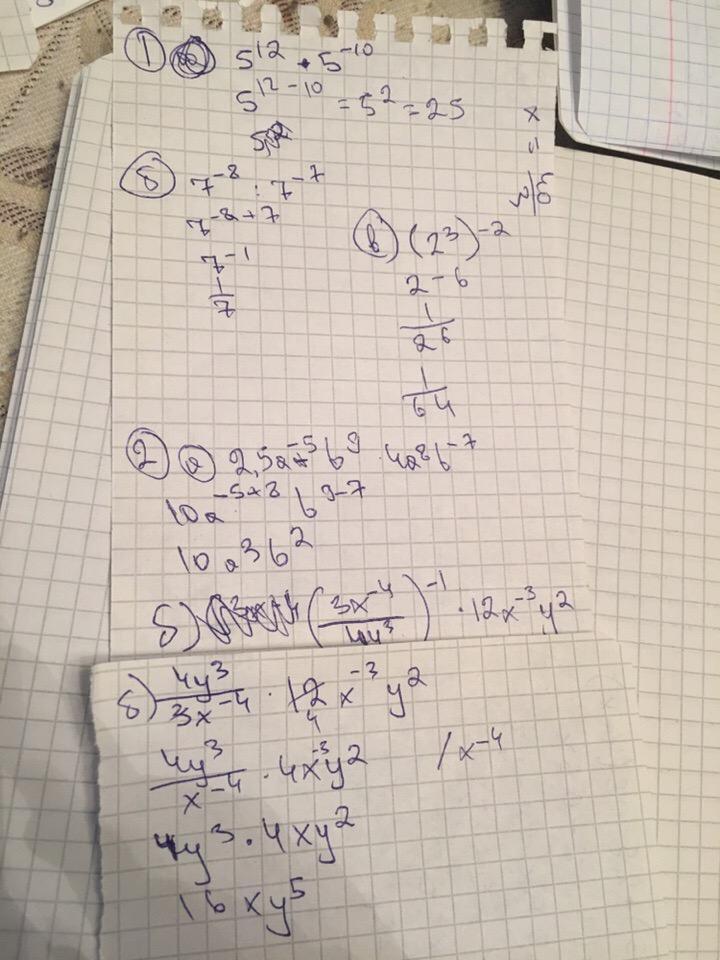 ① 5^12 · 5^-10
5^12-10 = 5^2 = 25
б 7^-8 : 7^-7
7^-8+7
7^-1
1/7
в (2^3)^-2
2^-6
1/2^6
1/64
② а 2,5a^-5 b^9 · 4a^8 b^-7
10a^-5+8 b^9-7
10a^3b^2
б) (3x^-4/4y^3)^-1 · 12x^-3y^2
б) 4y^3/3x^-4 · 12 4 x^-3 y^2
4y^3/x^-4 · 4x^-3y^2 /x^-4
4y^3 · 4xy^2
16xy^5